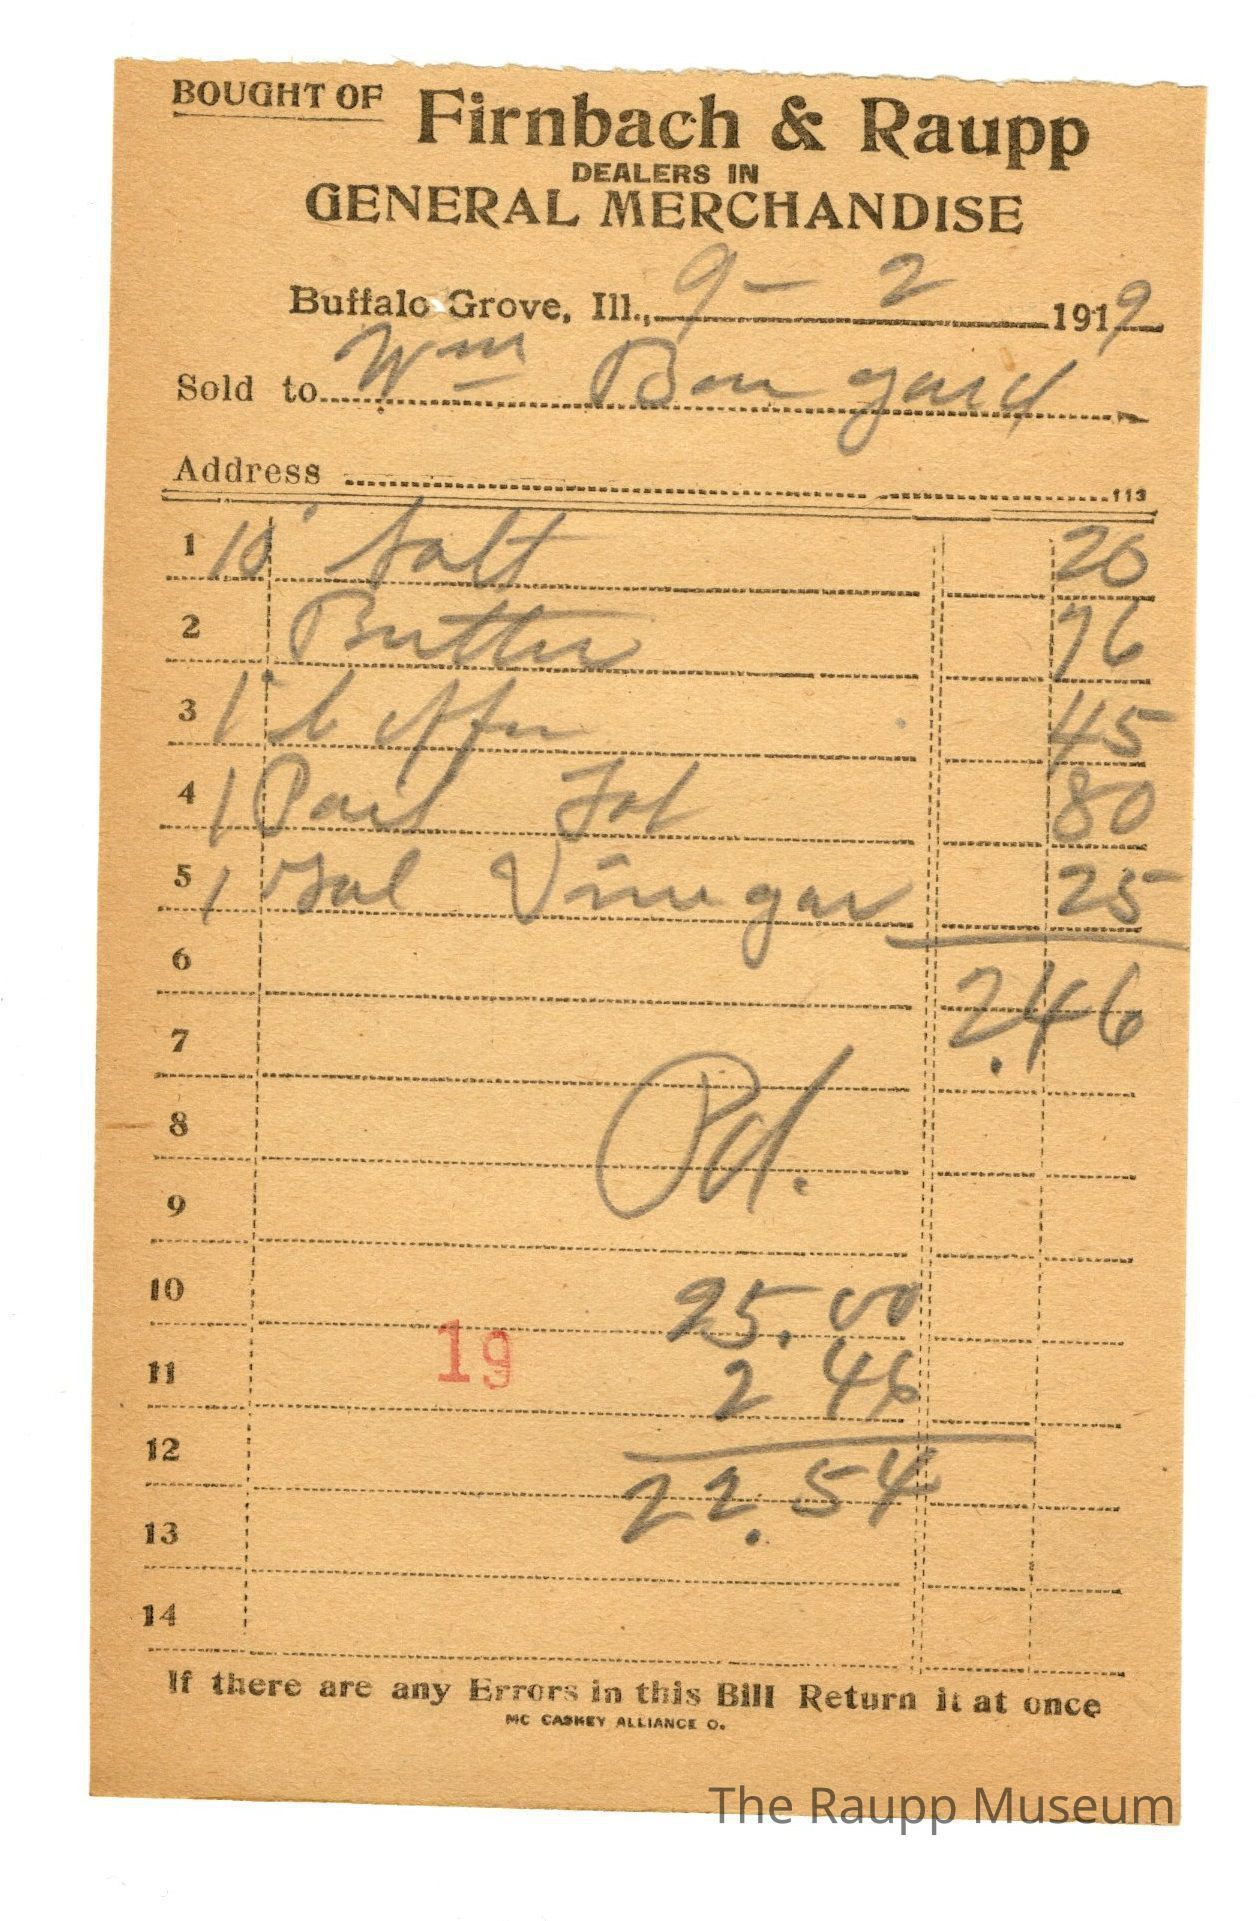 BOUGHT OF Firnbach & Raupp
DEALERS IN
GENERAL MERCHANDISE
Buffalo Grove, Ill., 9 - 2 1919
Sold to Wm Bongard
Address
113
1 10 Salt 20
2 Butter 76
3 1 Coffee 45
4 1 Pail 80
5 1 Gal Vinegar 25
6
2.46
7
8 Pd.
9
10 25.00
19
11 2 46
12
22.54
13
14
If there are any Errors in this Bill Return it at once
MC CASKEY ALLIANCE O.
The Raupp Museum